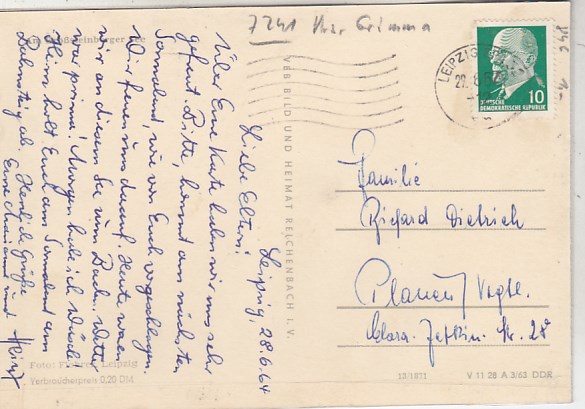 7241 Kr. Grimma
Leipzig, 28.6.64
Liebe Eltern!
Über Eure Karte haben wir uns sehr
gefreut. Bitte, kommt am nächsten
Sonnabend, wie von Euch vorgeschlagen.
Wir freuen uns darauf. Heute waren
wir an diesem See zum Baden. Wetter
war prima! Morgen habe ich Wäsche
Heinz holt Euch am Sonnabend vom
ab. Herzliche Grüße
Eure und Heinz
Familie
Richard Dietrich
Plauen/ Vogtl.
Clara-Zetkin-Str. 28
LEIPZIG
DEUTSCHE
DEMOKRATISCHE REPUBLIK
10
VEB BILD UND HEIMAT REICHENBACH I. V.
Foto: Leipzig
Verbraucherpreis 0,20 DM
13/1871
V 11 28 A 3/63 DDR